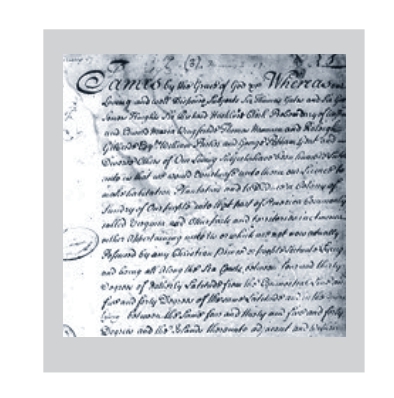 (3),
James by the Grace of God &c Whereas our
Loving and well Disposed Subjects Sir Thomas Gates and Sir Geo
Somers Knights Richard Hackluit Clerk Prebendary of
and Edward Maria Wingfield Thomas Hannam and Raleigh
Gilbert Esq.rs William Parker and George Popham Gent and
Divers Others of Our Loving Subjects have been humble
unto us that we would unto them our Licence to
make habitation Plantation and to Deduce a Colony of
Sundry of Our people into that part of America Commonly
called Virginia and Other parts and territories in America
either Appertaining unto Us or which are not now actually
Possessed by any Christian Prince or people Scituate Lying
and being all Along the Sea Coasts between four and thirty
Degrees of Northerly Latitude from the Equinoctial Line and
five and forty Degrees of the same Latitude and in the
between the same four and thirty and five and forty
Degrees and the Islands thereunto adjacent and